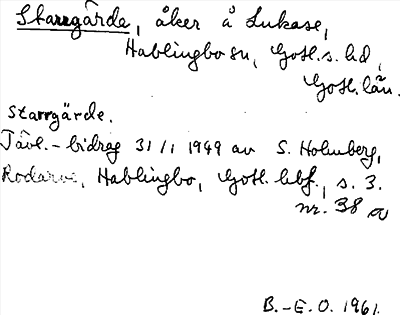 Starrgärde, åker å Lukase,
Hablingbo sn, Gotl. s. hd,
Gotl. län.
starrgärde.
Tävl.-bidrag 31/1 1949 av S. Holmberg,
Rodarve, Hablingbo, Gotl. hbf., s. 3.
nr. 38 a
B.-E. O. 1961.